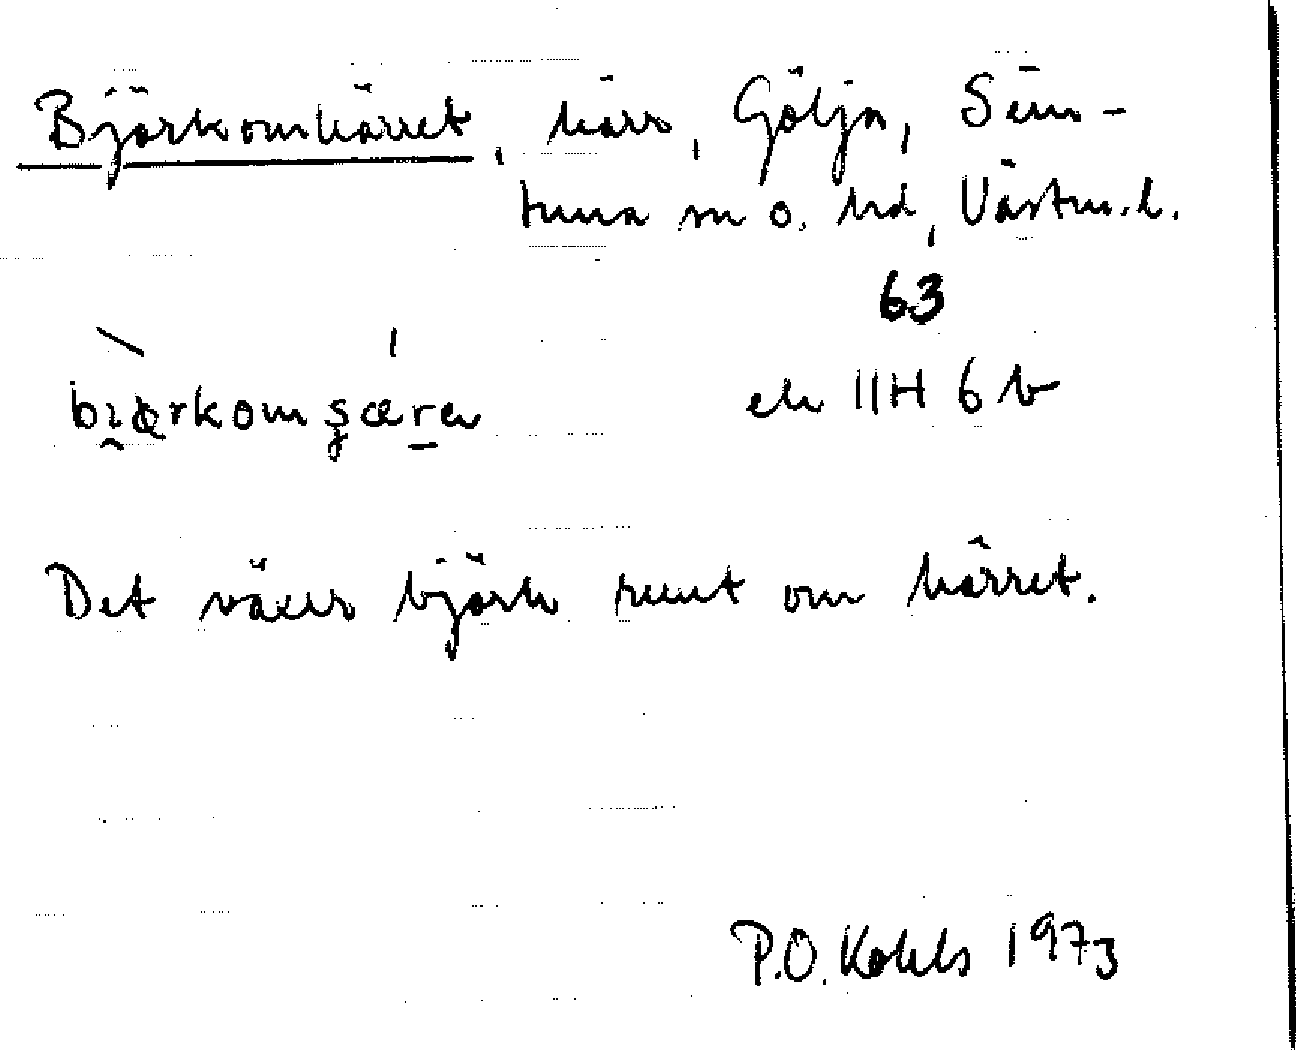 Björkomkärret, kärr, Gölja, Sim-
tuna sn o. hd, Västm.l.
63
bi̯ærkomʂæra ek 11H 6b
Det växer björk runt om kärret.
P.O. Kahls 1973